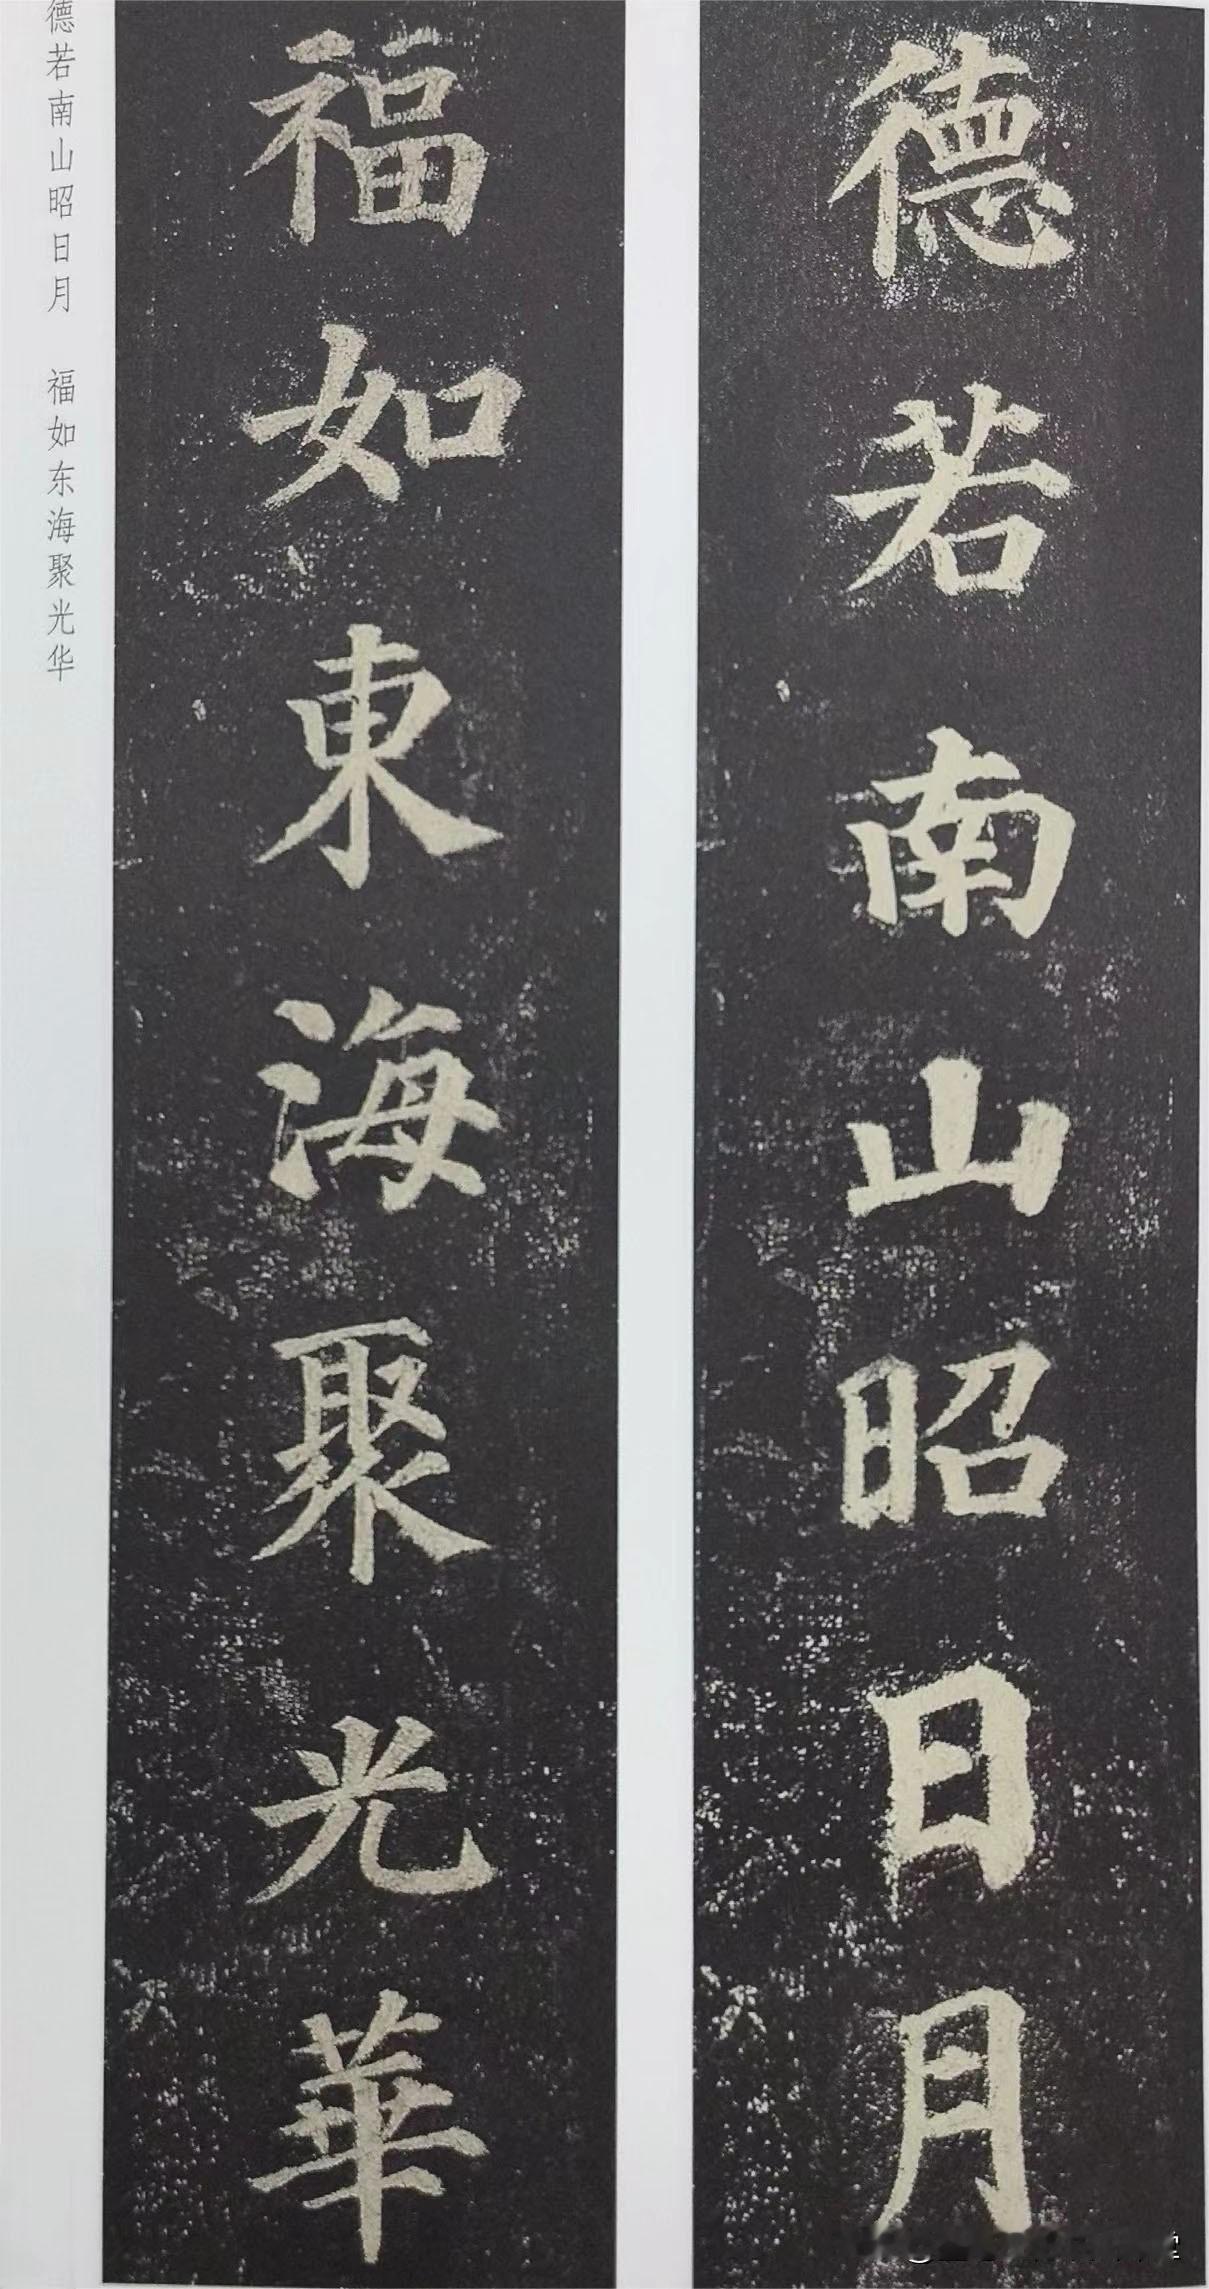 德若南山昭日月
福如東海聚光華
德若南山昭日月 福如东海聚光华